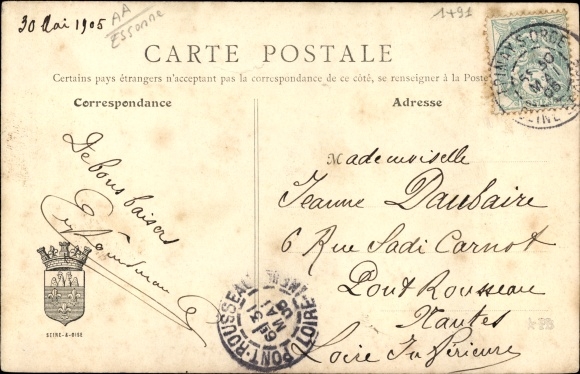 30 Mai 1905
AA
Essonne
1491
CARTE POSTALE
Certains pays étrangers n'acceptant pas la correspondance de ce côté, se renseigner à la Poste
Correspondance
Adresse
De bons baisers
SEINE-&-OISE
Mademoiselle
Jeanne Daubaire
6 Rue Sadi Carnot
Pont Rousseau
Nantes
Loire Inférieure
PONT-ROUSSEAU
LOIRE-INFRE
31
MAI
05
EPINAY-S-ORGE
30
MAI
05
SEINE